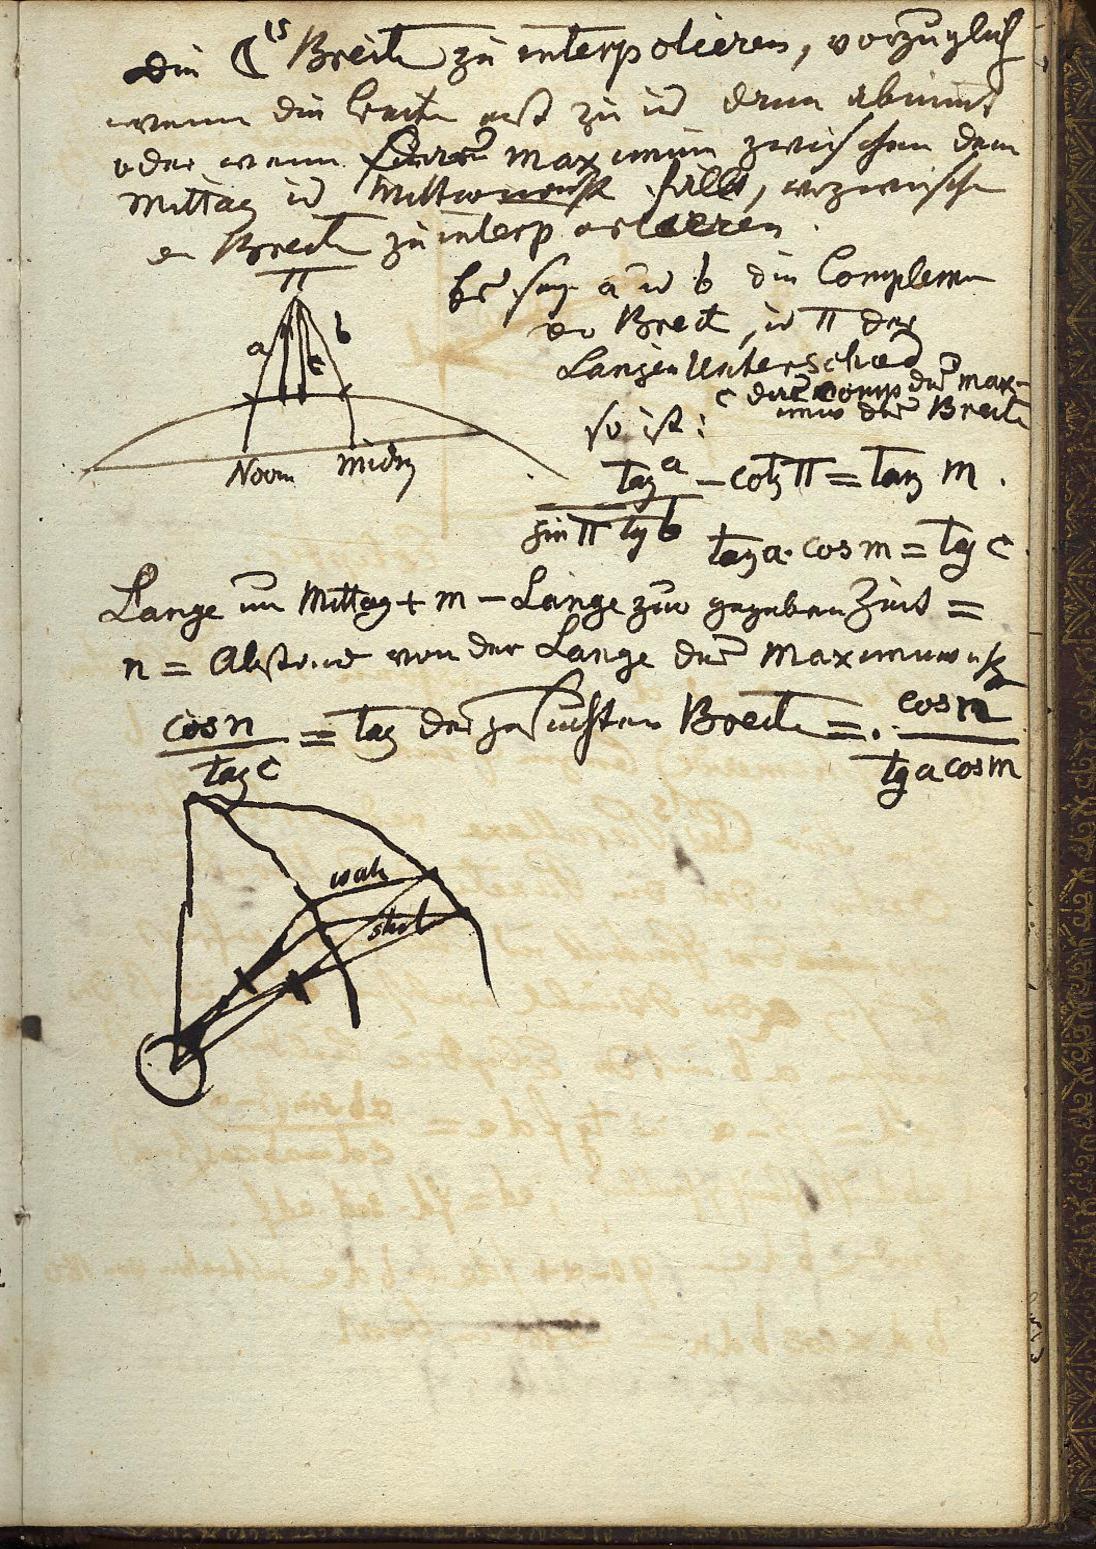 Die ☾ts Breite zu interpolieren, vorzüglich
wenn die breite erst zu u dann abnimt
oder wenn maximum zwischen dem
Mittag u Mitternacht fällt,
Breite zu interpolieren.
π
a
b
c
Noon
Midn
Es sey a u b die Complemen
der Breite, u π der
Längen Unterschied
c der comp des max-
imum der Breite
so ist:
tag a / sin π tg b − cotg π = tang m.
tang a · cos m = tg c
Lange im Mittag + m − Länge zur gegebnen Zeit =
n = Abstand von der Länge des Maximums
cos n / tag c = tag der gesuchten Breite = cos n / tg a cos m
wah